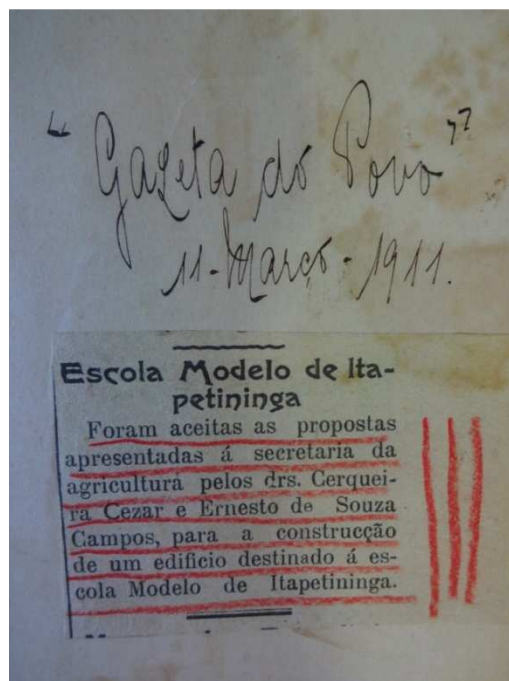 "Gazeta do Povo"
11-Março-1911.
Escola Modelo de Ita-
petininga
Foram aceitas as propostas
apresentadas á secretaria da
agricultura pelos drs. Cerquei-
ra Cezar e Ernesto de Souza
Campos, para a construcção
de um edificio destinado á es-
cola Modelo de Itapetininga.